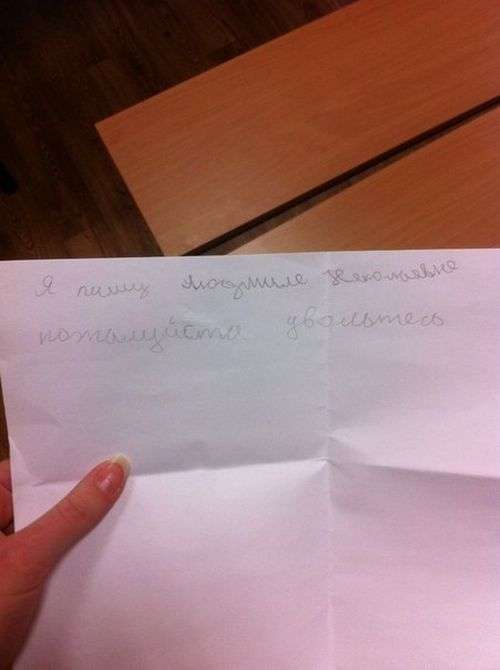 Я пишу Людмиле Неколаевне
пожалуйста увольтесь